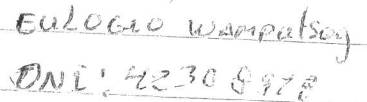 EULOGIO WAMPUTSAG
DNI: 42308978